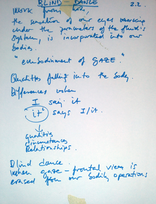 BLIND DANCE 2.2.
Work from
the sensation of our eyes
under the parameters of the
system, is incorporated into our
bodies
"embodiment of GAZE"
Qualities falling into the body.
Differences when
I say it
it says I/it.
qualities
circumstances
relationships.
Blind dance
when gaze - frontal view is
erased from our bodily operations